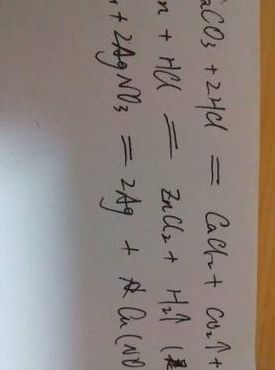 aCO3 + 2HCl = CaCl2 + CO2↑ +
n + HCl = ZnCl2 + H2↑ (
+ 2AgNO3 = 2Ag + Cu(NO